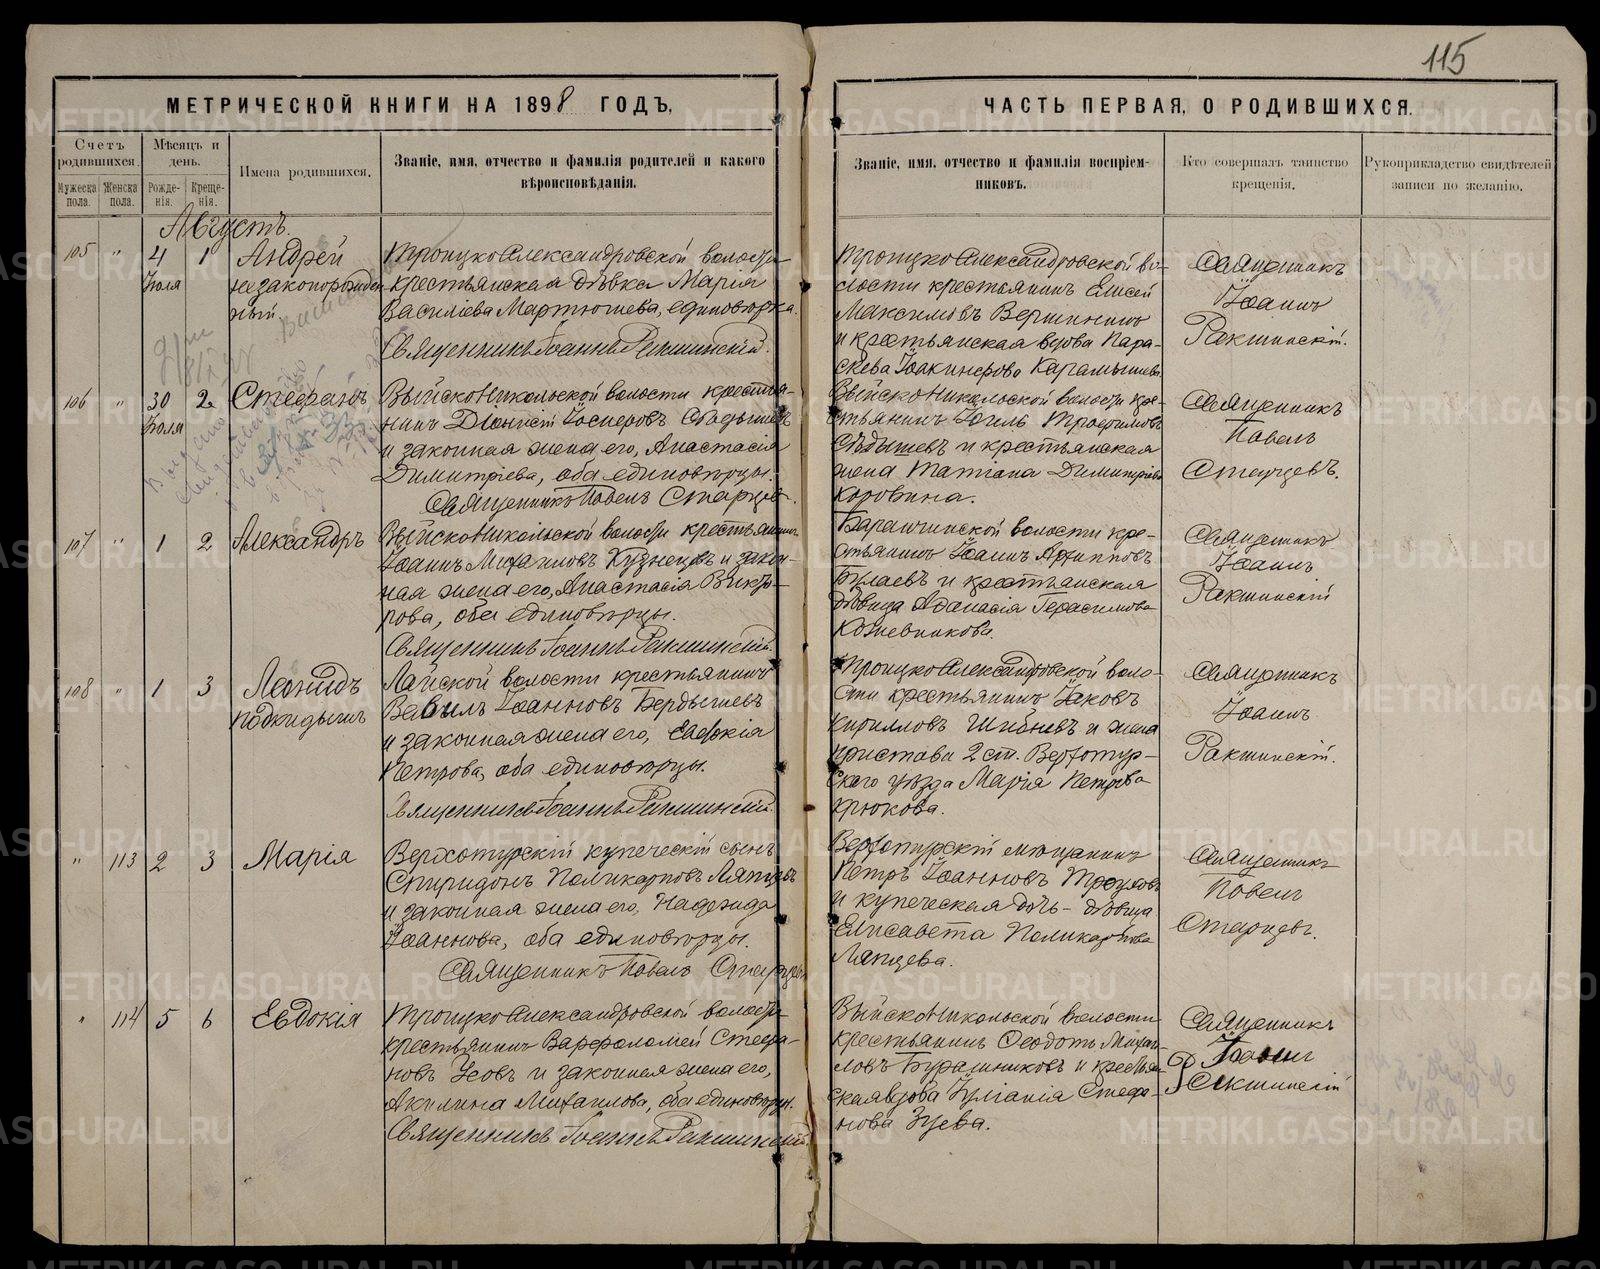 115
МЕТРИЧЕСКОЙ КНИГИ НА 1898 ГОДЪ,
ЧАСТЬ ПЕРВАЯ, О РОДИВШИХСЯ.
Счетъ родившихся.
Мѣсяцъ и день.
Имена родившихся.
Званіе, имя, отчество и фамилія родителей и какого
вѣроисповѣданія.
Званіе, имя, отчество и фамилія воспріем-
никовъ.
Кто совершалъ таинство
крещенія.
Рукоприкладство свидѣтелей
записи по желанію.
Мужеска пола.
Женска пола.
Рожде-
нія.
Креще-
нія.
Августъ.
105 " 4 Іюля 1
Андрей
незаконорожден
ный
ТроицкоАлександровской волости
крестьянская дѣвка Марія
Василіева Мартюшева, единовѣрка.
Священникъ Іоаннъ Ракшинскій.
ТроицкоАлександровской во-
лости крестьянинъ Елисей
Максимовъ Вершининъ
и крестьянская вдова Пара-
скева Іоакинфова Карамышева
Священникъ
Іоаннъ
Ракшинскій.
106 " 30 Іюля 2
Стефанъ
ВыйскоНикольской волости крестья-
нинъ Діонисій Іосифовъ
и законная жена его, Анастасія
Димитріева, оба единовѣрцы.
Священникъ Павелъ Старцевъ.
ВыйскоНикольской волости кре-
стьянинъ Іоиль Трофимовъ
и крестьянская
жена Татіана Димитріева
Коровина.
Священникъ
Павелъ
Старцевъ.
107 " 1 2
Александръ
ВыйскоНикольской волости крестьянинъ
Іоаннъ Михаиловъ Кузнецовъ и закон-
ная жена его, Анастасія Викто-
рова, оба единовѣрцы.
Священникъ Іоаннъ Ракшинскій.
Баранчинской волости кре-
стьянинъ Іоаннъ Архипповъ
Булаевъ и крестьянская
дѣвица Аѳанасія Герасимова
Кожевникова.
Священникъ
Іоаннъ
Ракшинскій
108 " 1 3
Леонидъ
подкидышъ
Лайской волости крестьянинъ
Вавилъ Іоанновъ Бердышевъ
и законная жена его, Евдокія
Петрова, оба единовѣрцы.
Священникъ Іоаннъ Ракшинскій.
ТроицкоАлександровской воло-
сти крестьянинъ Іаковъ
Кирилловъ и жена
пристава 2 ст. Верхотур-
скаго уѣзда Марія Петрова
Крюкова.
Священникъ
Іоаннъ
Ракшинскій.
" 113 2 3
Марія
Верхотурскій купеческій сынъ
Спиридонъ Поликарповъ Ляпцевъ
и законная жена его, Надежда
Іоаннова, оба единовѣрцы.
Священникъ Павелъ Старцевъ
Верхотурскій мѣщанинъ
Петръ Іоанновъ
и купеческая дочь - дѣвица
Елисавета Поликарпова
Ляпцева.
Священникъ
Павелъ
Старцевъ.
" 114 5 6
Евдокія
ТроицкоАлександровской волости
крестьянинъ Варфоломей Стефа-
новъ Усовъ и законная жена его,
Акилина Михаилова, оба единовѣрцы.
Священникъ Іоаннъ Ракшинскій
ВыйскоНикольской волости
крестьянинъ Ѳеодотъ Михаи-
ловъ Бурашниковъ и крестьян-
ская вдова Іуліанія Стефа-
нова Зуева.
Священникъ
Іоаннъ
Ракшинскій
METRIKI.GASO-URAL.RU